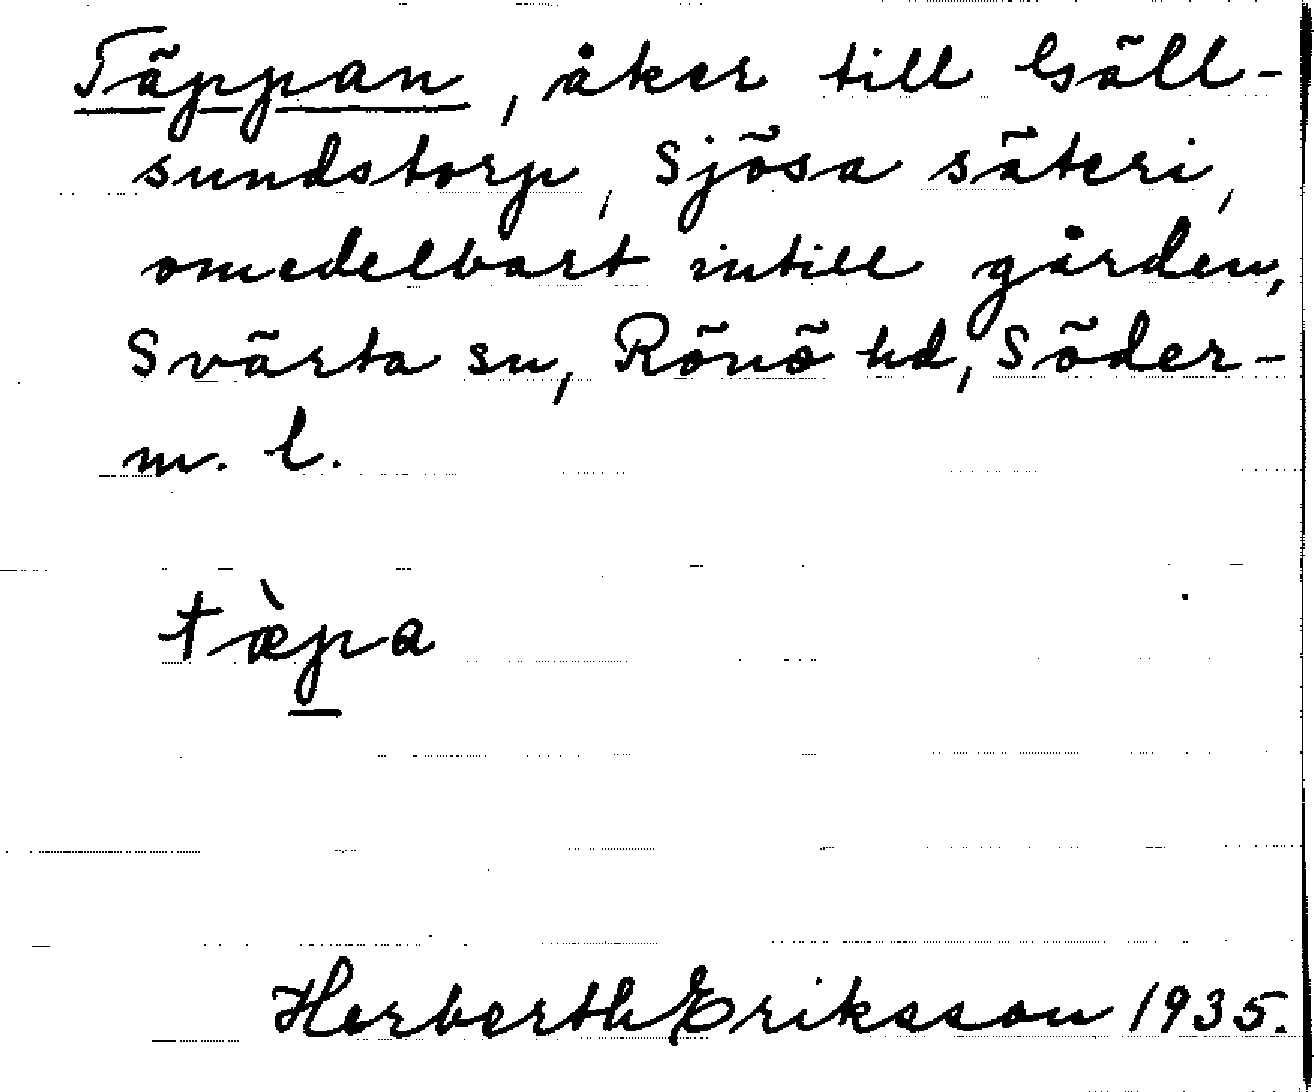 Täppan, åker till Gäll-
sundstorp, Sjösa säteri,
omedelbart intill gården,
Svärta sn, Rönö hd, Söder-
m. l.
tæ̀p̲a
Herberth Eriksson 1935.